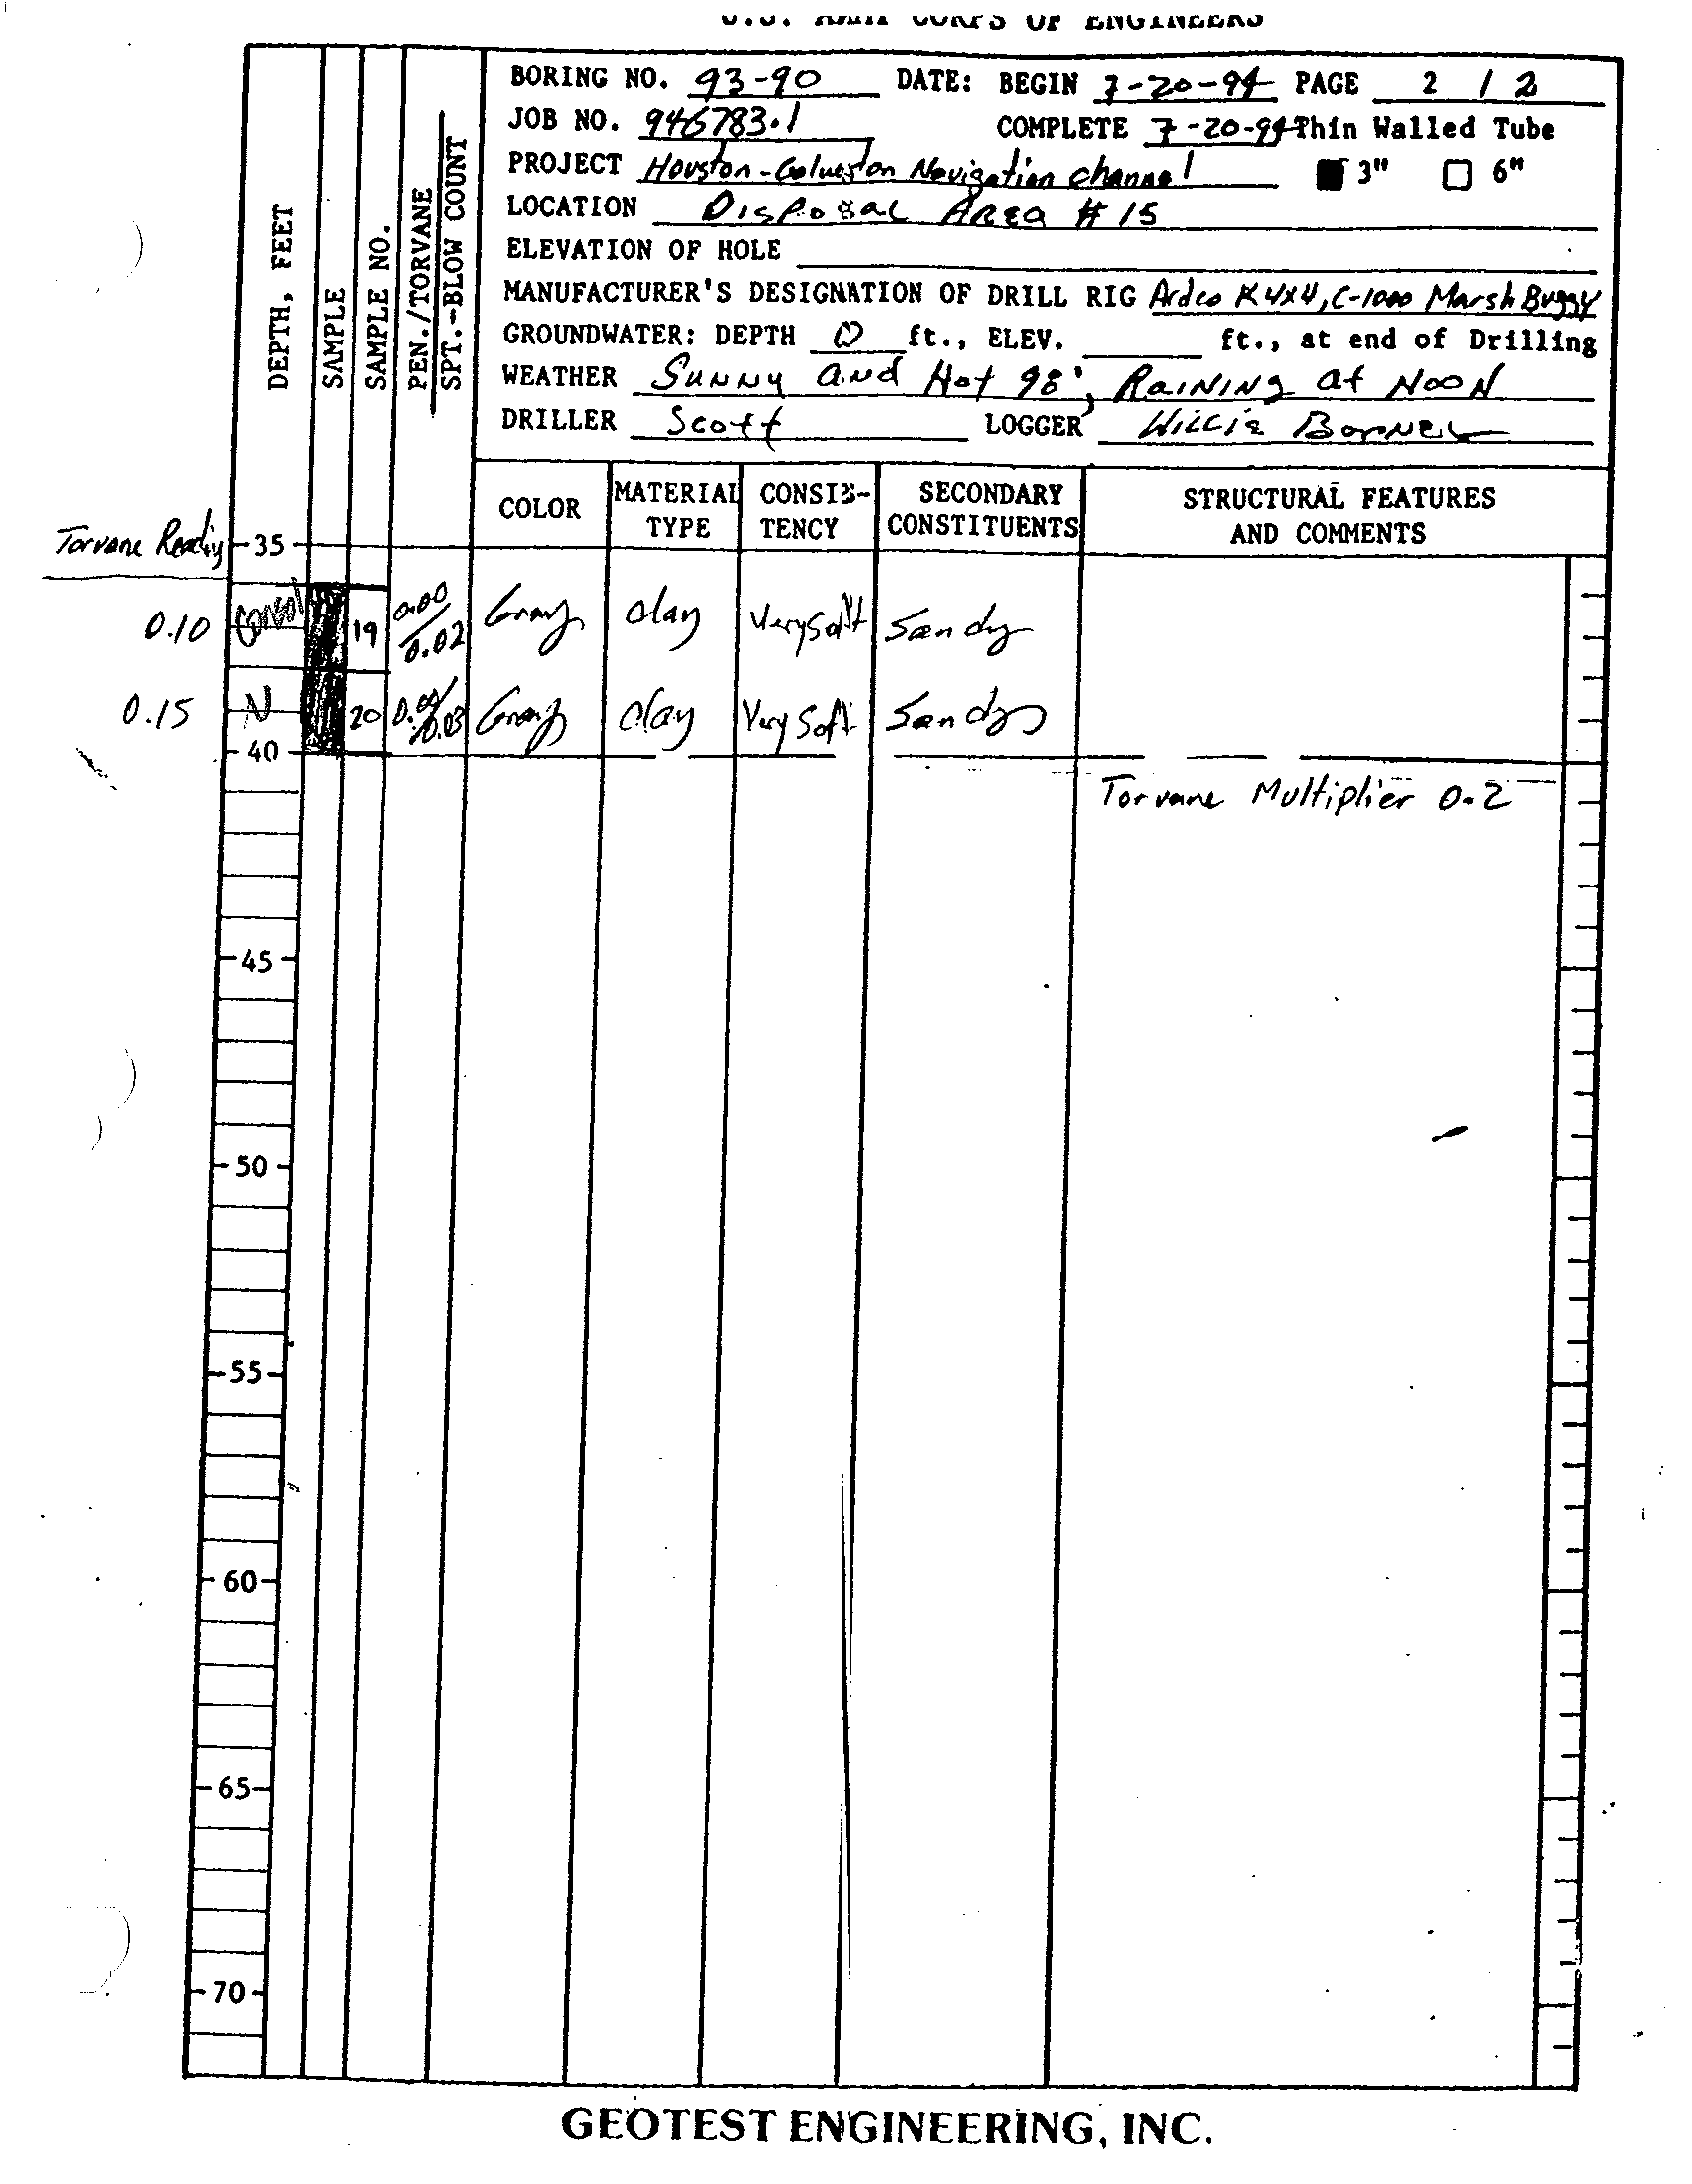 U.S. ARMY CORPS OF ENGINEERS
BORING NO. 93-90 DATE: BEGIN 7-20-94 PAGE 2 / 2
JOB NO. 946783.1 COMPLETE 7-20-94 Thin Walled Tube
PROJECT Houston-Galveston Navigation channel 3" 6"
LOCATION Disposal Area # 15
ELEVATION OF HOLE
MANUFACTURER'S DESIGNATION OF DRILL RIG Ardco K 4x4, C-1000 Marsh Buggy
GROUNDWATER: DEPTH 0 ft., ELEV. ft., at end of Drilling
WEATHER Sunny and Hot 98°, Raining at Noon
DRILLER Scott LOGGER Willie
DEPTH, FEET
SAMPLE
SAMPLE NO.
PEN./TORVANE
SPT.-BLOW COUNT
COLOR MATERIAL TYPE CONSIS-TENCY SECONDARY CONSTITUENTS STRUCTURAL FEATURES AND COMMENTS
Torvane Reading 35
0.10 Consol 19 0.00/0.02 Gray Clay Very Soft Sandy
0.15 N 20 0.00/0.03 Gray Clay Very Soft Sandy
40
Torvane Multiplier 0.2
45
50
55
60
65
70
GEOTEST ENGINEERING, INC.